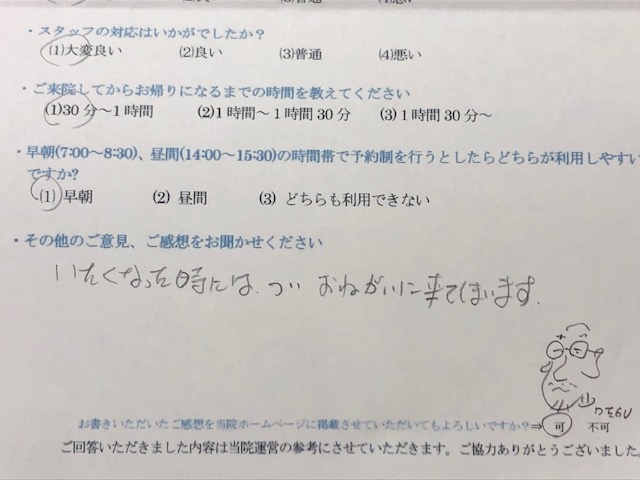 ・スタッフの対応はいかがでしたか？
(1)大変良い (2)良い (3)普通 (4)悪い
・ご来院してからお帰りになるまでの時間を教えてください
(1)30分～1時間 (2)1時間～1時間30分 (3)1時間30分～
・早朝(7:00～8:30)、昼間(14:00～15:30)の時間帯で予約制を行うとしたらどちらが利用しやすい
ですか?
(1)早朝 (2) 昼間 (3) どちらも利用できない
・その他のご意見、ご感想をお聞かせください
いたくなった時には、つい おねがいに来てしまいます.
お書きいただいたご感想を当院ホームページに掲載させていただいてもよろしいですか？⇒ 可 不可
ご回答いただきました内容は当院運営の参考にさせていただきます。ご協力ありがとうございました。